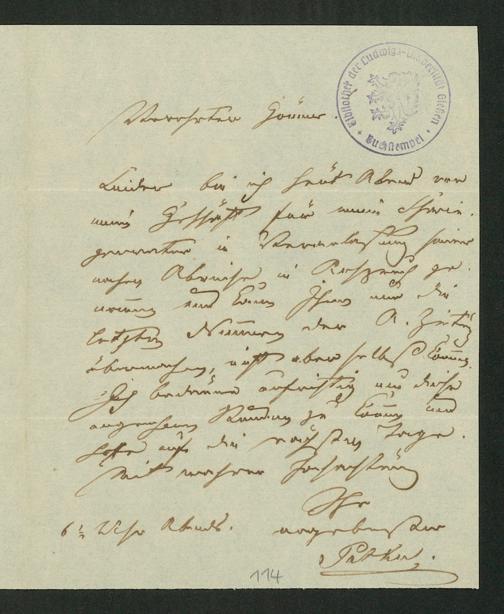 Bibliothek der Ludwigs-Universität Gießen
Buchstempel
Verehrter Gönner.
Leider bin ich heut Abend von
mein Geschäft für mein
in Veranlassung seiner
nahen Abreise in Anspruch ge-
nommen und kann Ihnen nur die
letzten Nummern der A. Zeitg
übermachen, nicht aber selbst komm.
Ich bedaure aufrichtig um diese
angenehmen Stunden zu kommen und
hoffe auf die nächsten Tage.
Mit wahrer Hochachtung
Ihr
6½ Uhr Abends. ergebenster
114